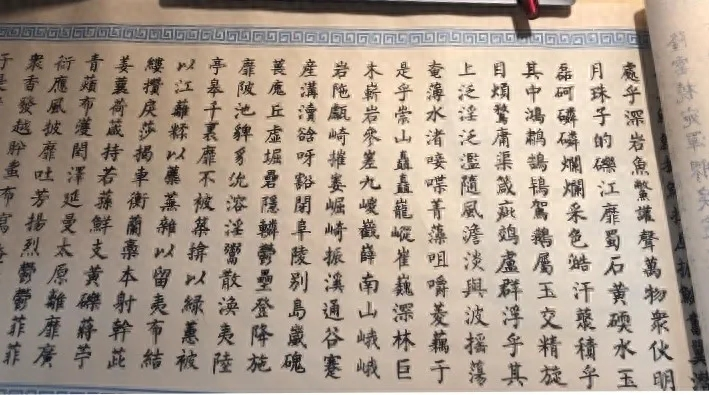 處乎深岩魚鱉讙聲萬物衆伙明
月珠子的礫江靡蜀石黃碝水玉
磊砢磷磷爛爛采色澔汗藂積乎
其中鴻鷫鵠鴇鴐鵝屬玉交精旋
目煩鶩庸渠箴疵鵁盧群浮乎其
上泛淫泛濫隨風澹淡與波搖蕩
奄薄水渚唼喋菁藻咀嚼菱藕于
是乎崇山矗矗巃嵸崔巍深林巨
木嶄岩參差九嵕巀嶭南山峨峨
岩陁甗崎摧崣崛崎振溪通谷蹇
產溝瀆谽呀豁閉阜陵別島崴磈
丘虛堀礨隱轔鬱壘登降施
靡陂池貏豸沇溶淫鬻散渙夷陸
亭皋千裏靡不被築揜以緑蕙被
以江蘺糅以蘪蕪雜以留夷布結
縷攢戾莎揭車衡蘭槀本射幹茈
薑蘘荷葴持若蓀鮮支黃礫蔣苧
青薠布濩閎澤延曼太原離靡廣
衍應風披靡吐芳揚烈鬱鬱菲菲
衆香發越肸蠁布寫